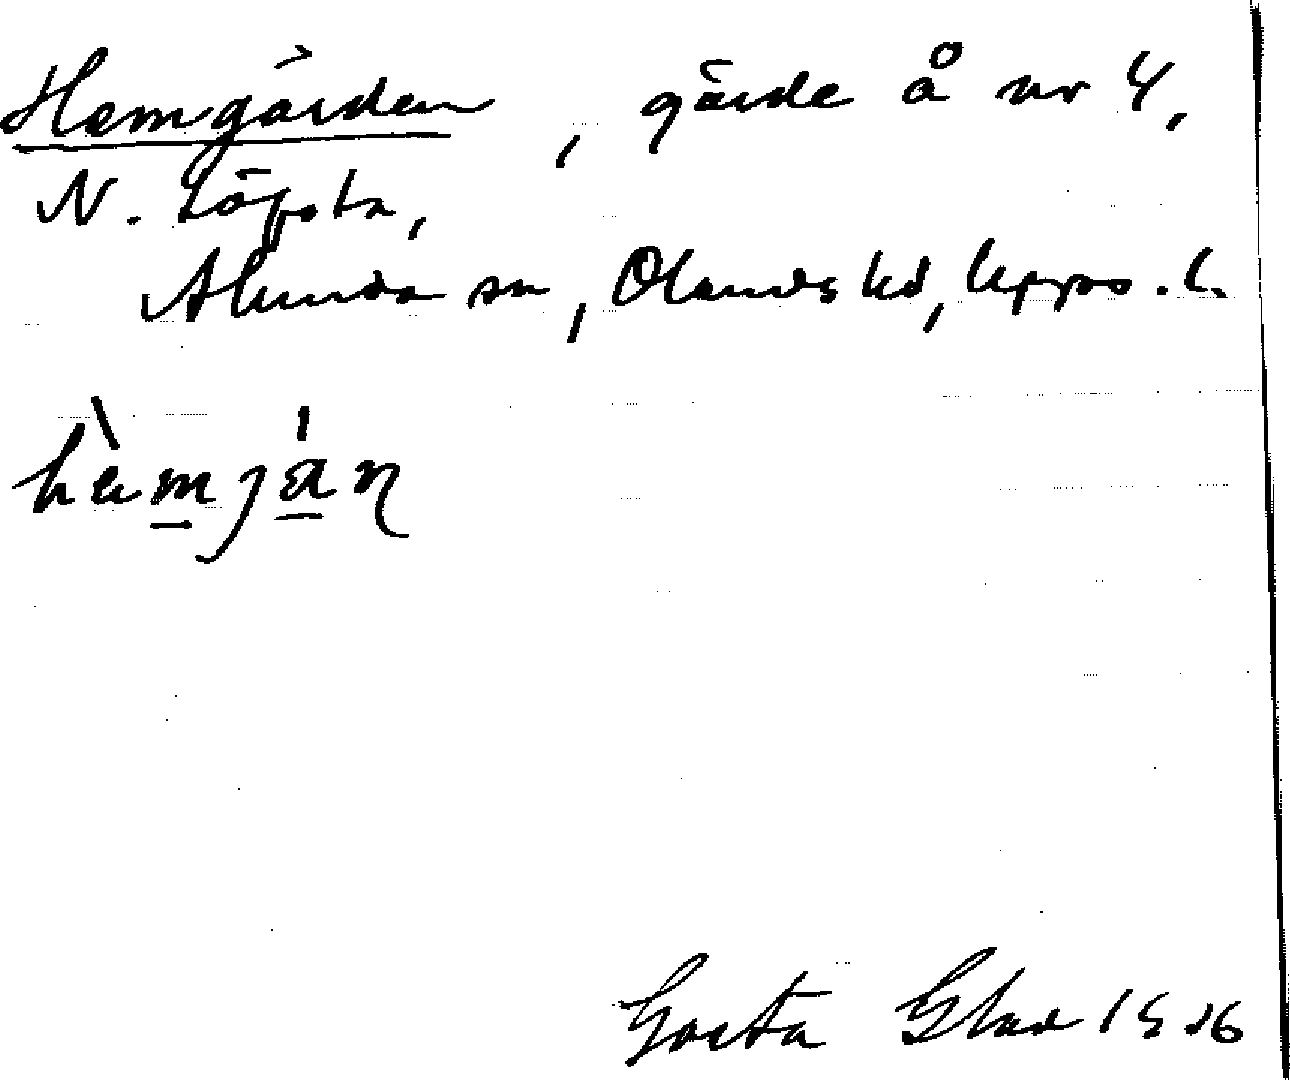 Hemgården, gärde å nr 4,
N. Löfsta,
Alunda sn, Olands hd, Upps. l.
hèmján
Gösta Glad 1926